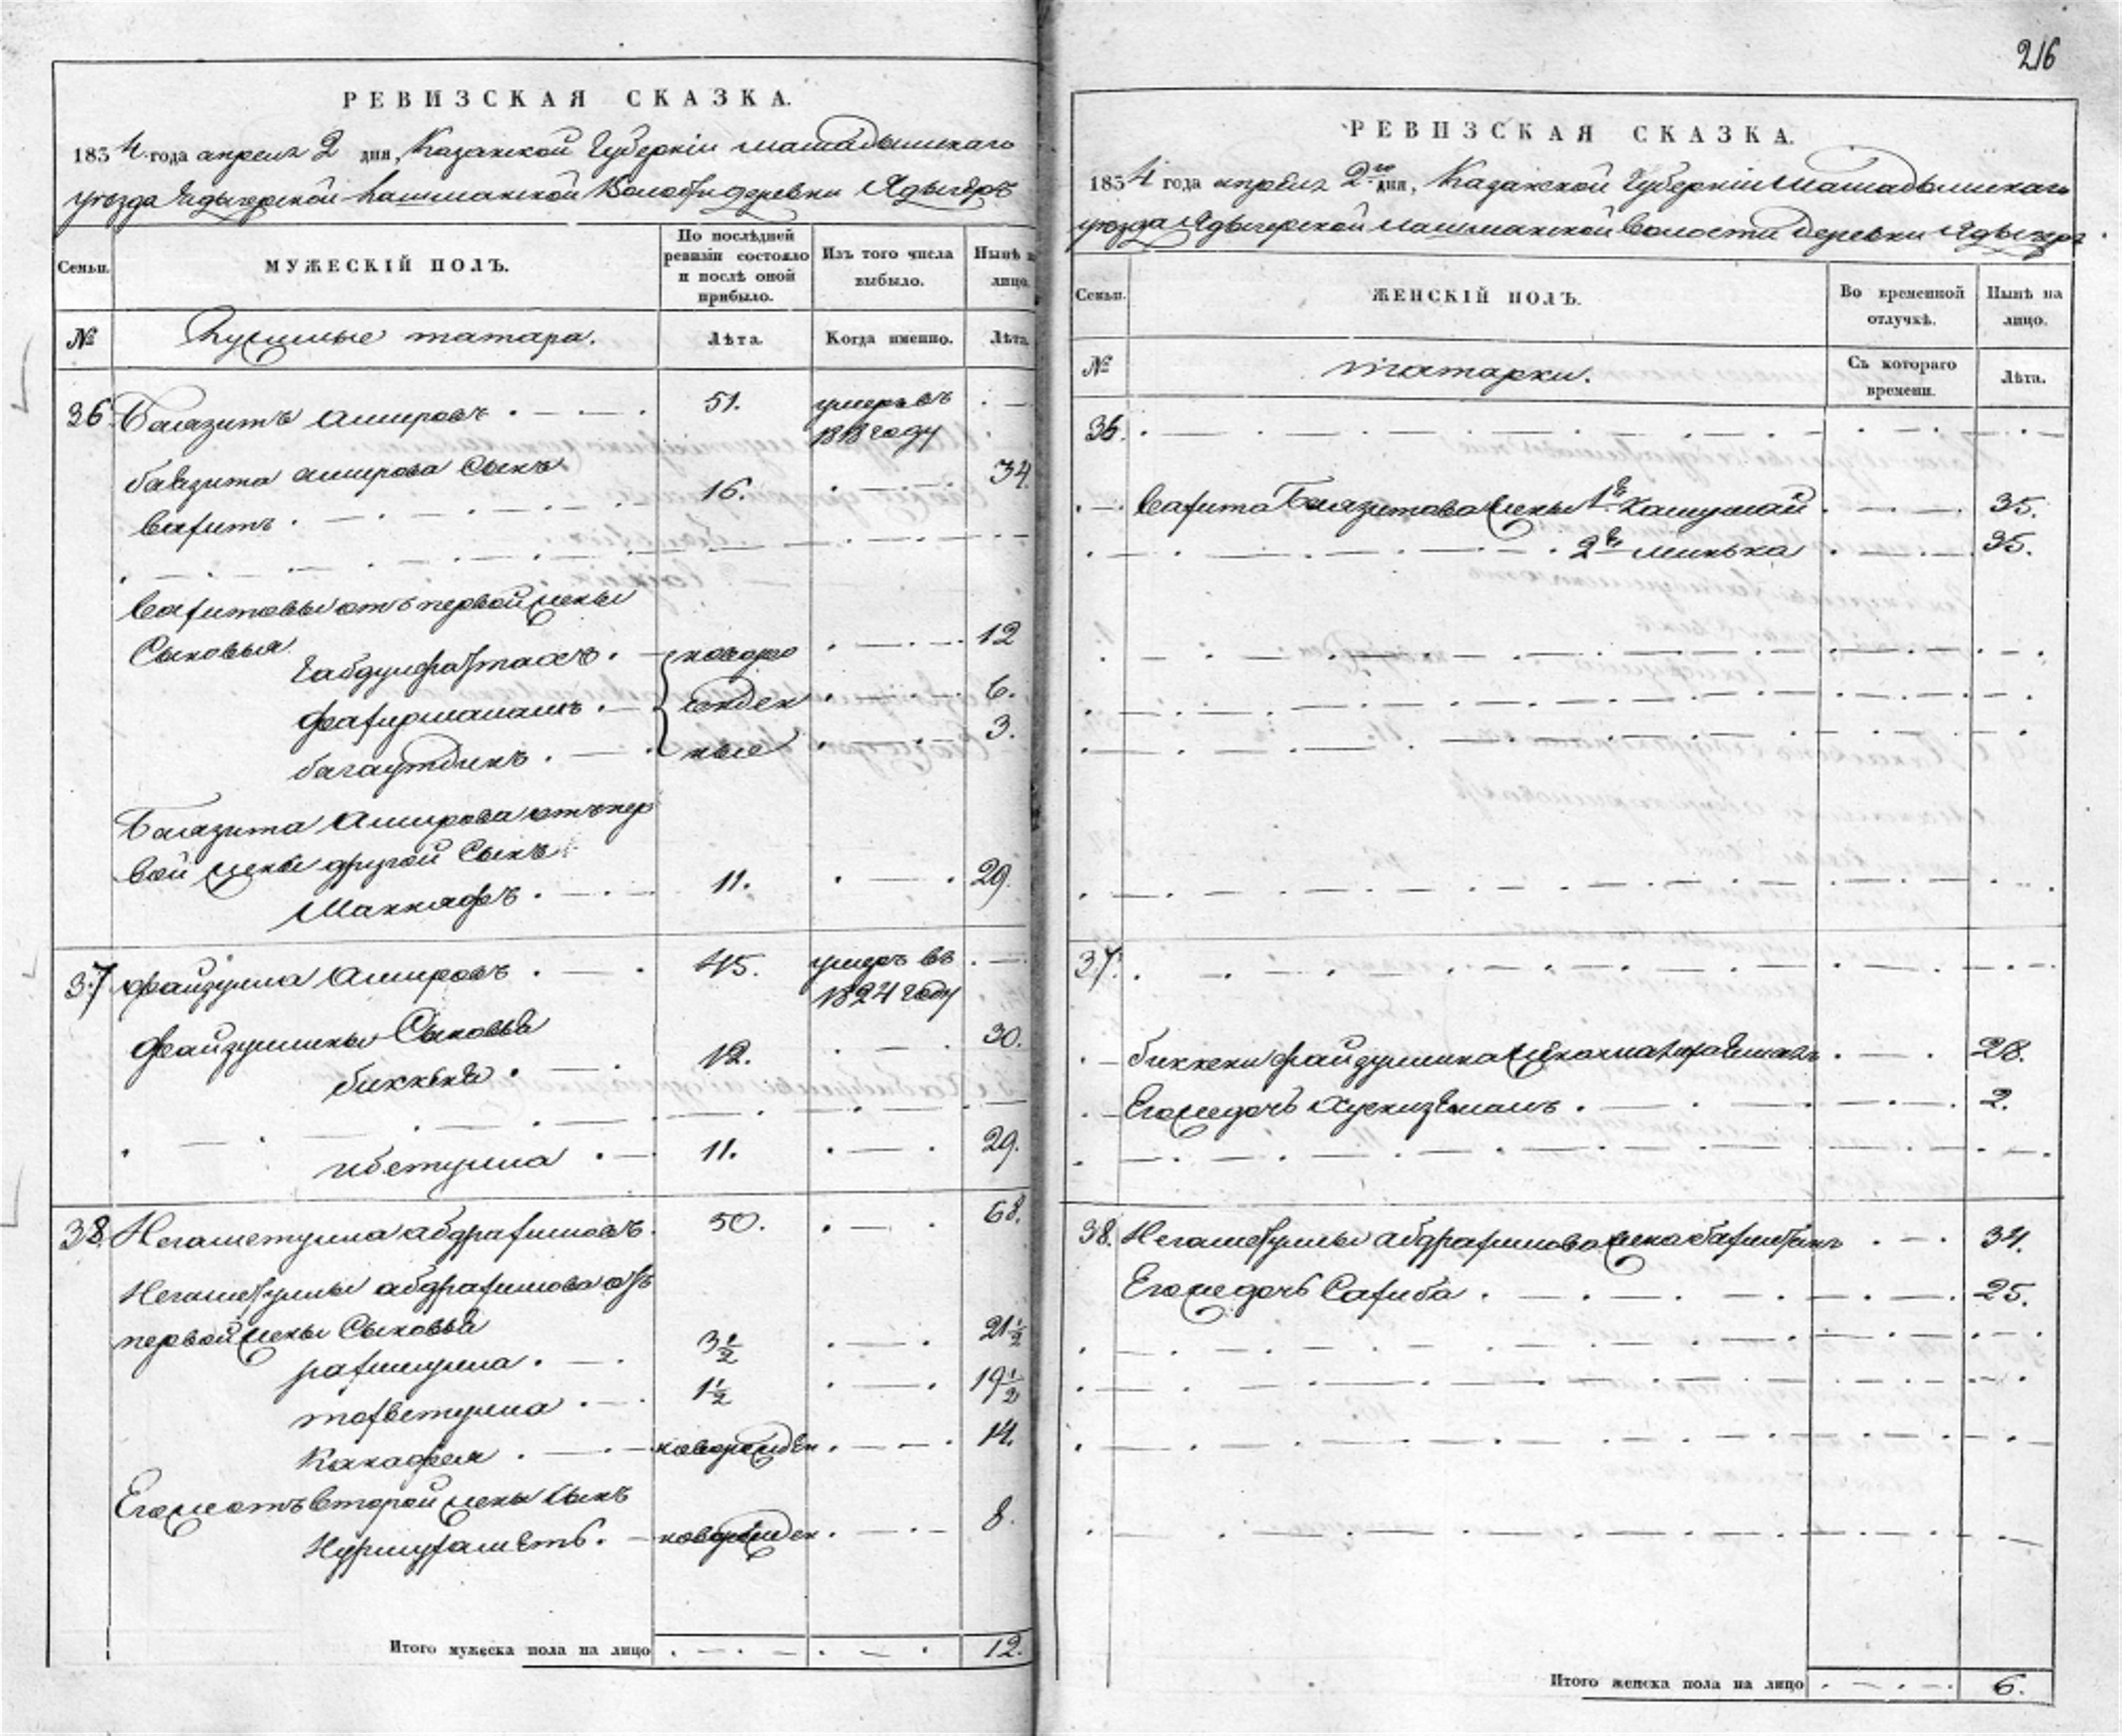 216
РЕВИЗСКАЯ СКАЗКА.
1834 года апреля 2 дня, Казанской Губернiи мамадышскаго
уезда Ядыгерской лашманской Волости деревни Ядыгерь
Семьи. МУЖЕСКІЙ ПОЛЪ. По послѣдней ревизіи состояло и послѣ оной прибыло. Изъ того числа выбыло. Нынѣ на лицо.
№ татара. Лѣта. Когда именно. Лѣта.
36 Баязитъ Амировъ 51. умеръ въ
1818 году
баязита амирова Сынъ 34.
Сагитъ 16.
Сагитовы отъ первой жены
Сыновья 12
Габдулфаттахъ новорож
6.
багаутдинъ ные 3.
Баязита Амирова отъ пер
вой жены другой Сынъ
Маннафъ 11. 29.
37 файзулла Амировъ 45. умеръ въ
1824 году
файзуллины Сыновья 30.
биккеня 12.
ибетулла 11. 29.
38 Негаметулла абдрафиковъ 50. 68.
Негаметуллы абдрафикова отъ
первой жены Сыновья 21 1/2
3 1/2
1 1/2 19 1/2
Канафея новорожден 14.
Его же отъ второй жены Сынъ
Нурмухаметъ новорожден 8.
Итого мужеска пола на лицо 12.
РЕВИЗСКАЯ СКАЗКА.
1834 года апреля 2го дня, Казанской Губернiи Мамадышскаго
уезда Ядыгерской лашманской волости деревни Ядыгерь
Семьи. ЖЕНСКІЙ ПОЛЪ. Во временной отлучкѣ. Нынѣ на лицо.
№ татарки. Съ котораго времени. Лѣта.
36.
Сагита Баязитова жены 1я 35.
2я 35.
37.
биккени файзуллина жена 28.
Его же дочь 2.
38. Негаметуллы абдрафикова жена 34.
Его же дочь Сагиба 25.
Итого женска пола на лицо 6.